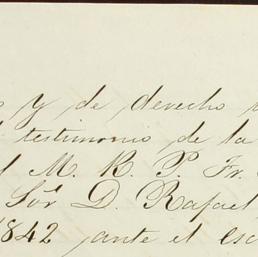 y de derecho
testimonio de la
M. R. P. Fr.
Sôr D. Rafael
1842 ante el esc